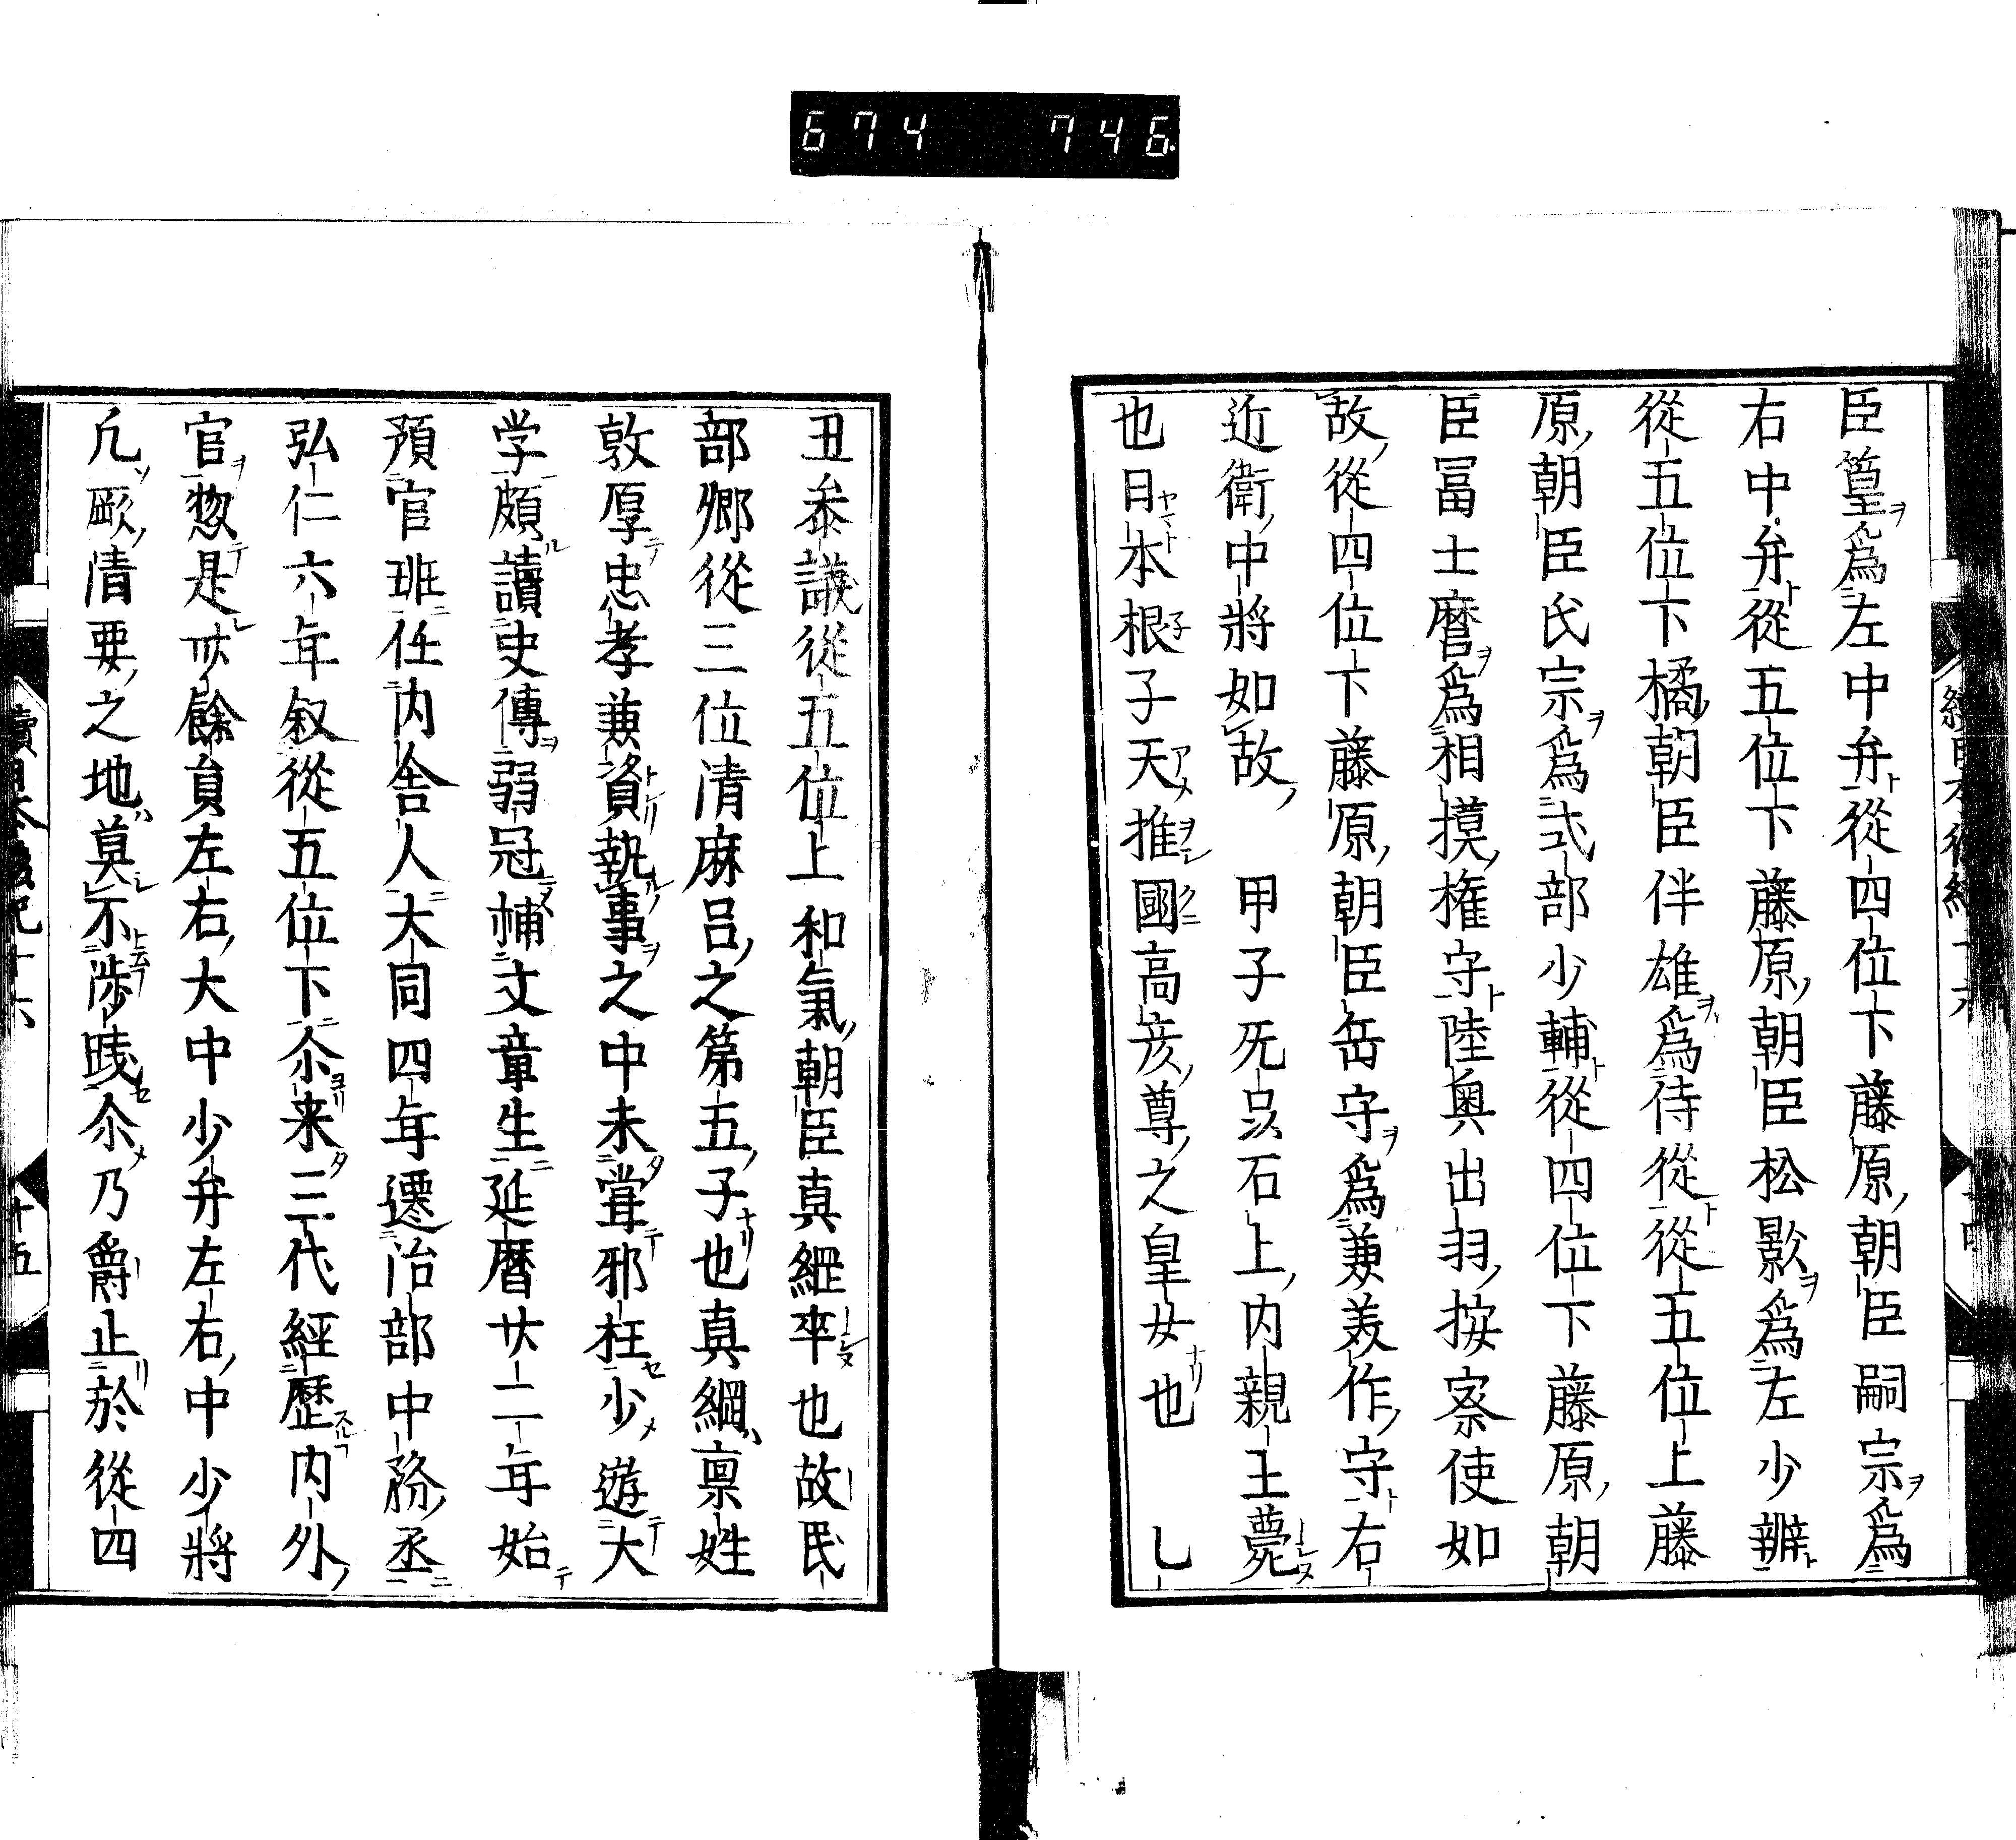 674 746
臣篁爲左中弁從四位下藤原朝臣嗣宗爲
右中弁從五位下藤原朝臣松影爲左少辨
從五位下橘朝臣伴雄爲侍從從五位上藤
原朝臣氏宗爲式部少輔從四位下藤原朝
臣冨士麿爲相摸權守陸奥出羽按察使如
故從四位下藤原朝臣岳守爲兼美作守右
近衛中將如故　甲子无品石上内親王薨
也日本根子天推國高彦尊之皇女也　乙
丑叅議從五位上和氣朝臣真綱卒也故民
部卿從三位清麻呂之第五子也真綱禀姓
敦厚忠孝兼資執事之中未甞邪枉少遊大
学頗讀史傳弱冠補文章生延暦廿二年始
預官班任内舎人大同四年遷治部中務丞
弘仁六年叙從五位下尒来三代經歴内外
官惣是廿餘負左右大中少弁左右中少將
凢厥清要之地莫不渉践尒乃爵止於從四
續日本後紀十六
十五